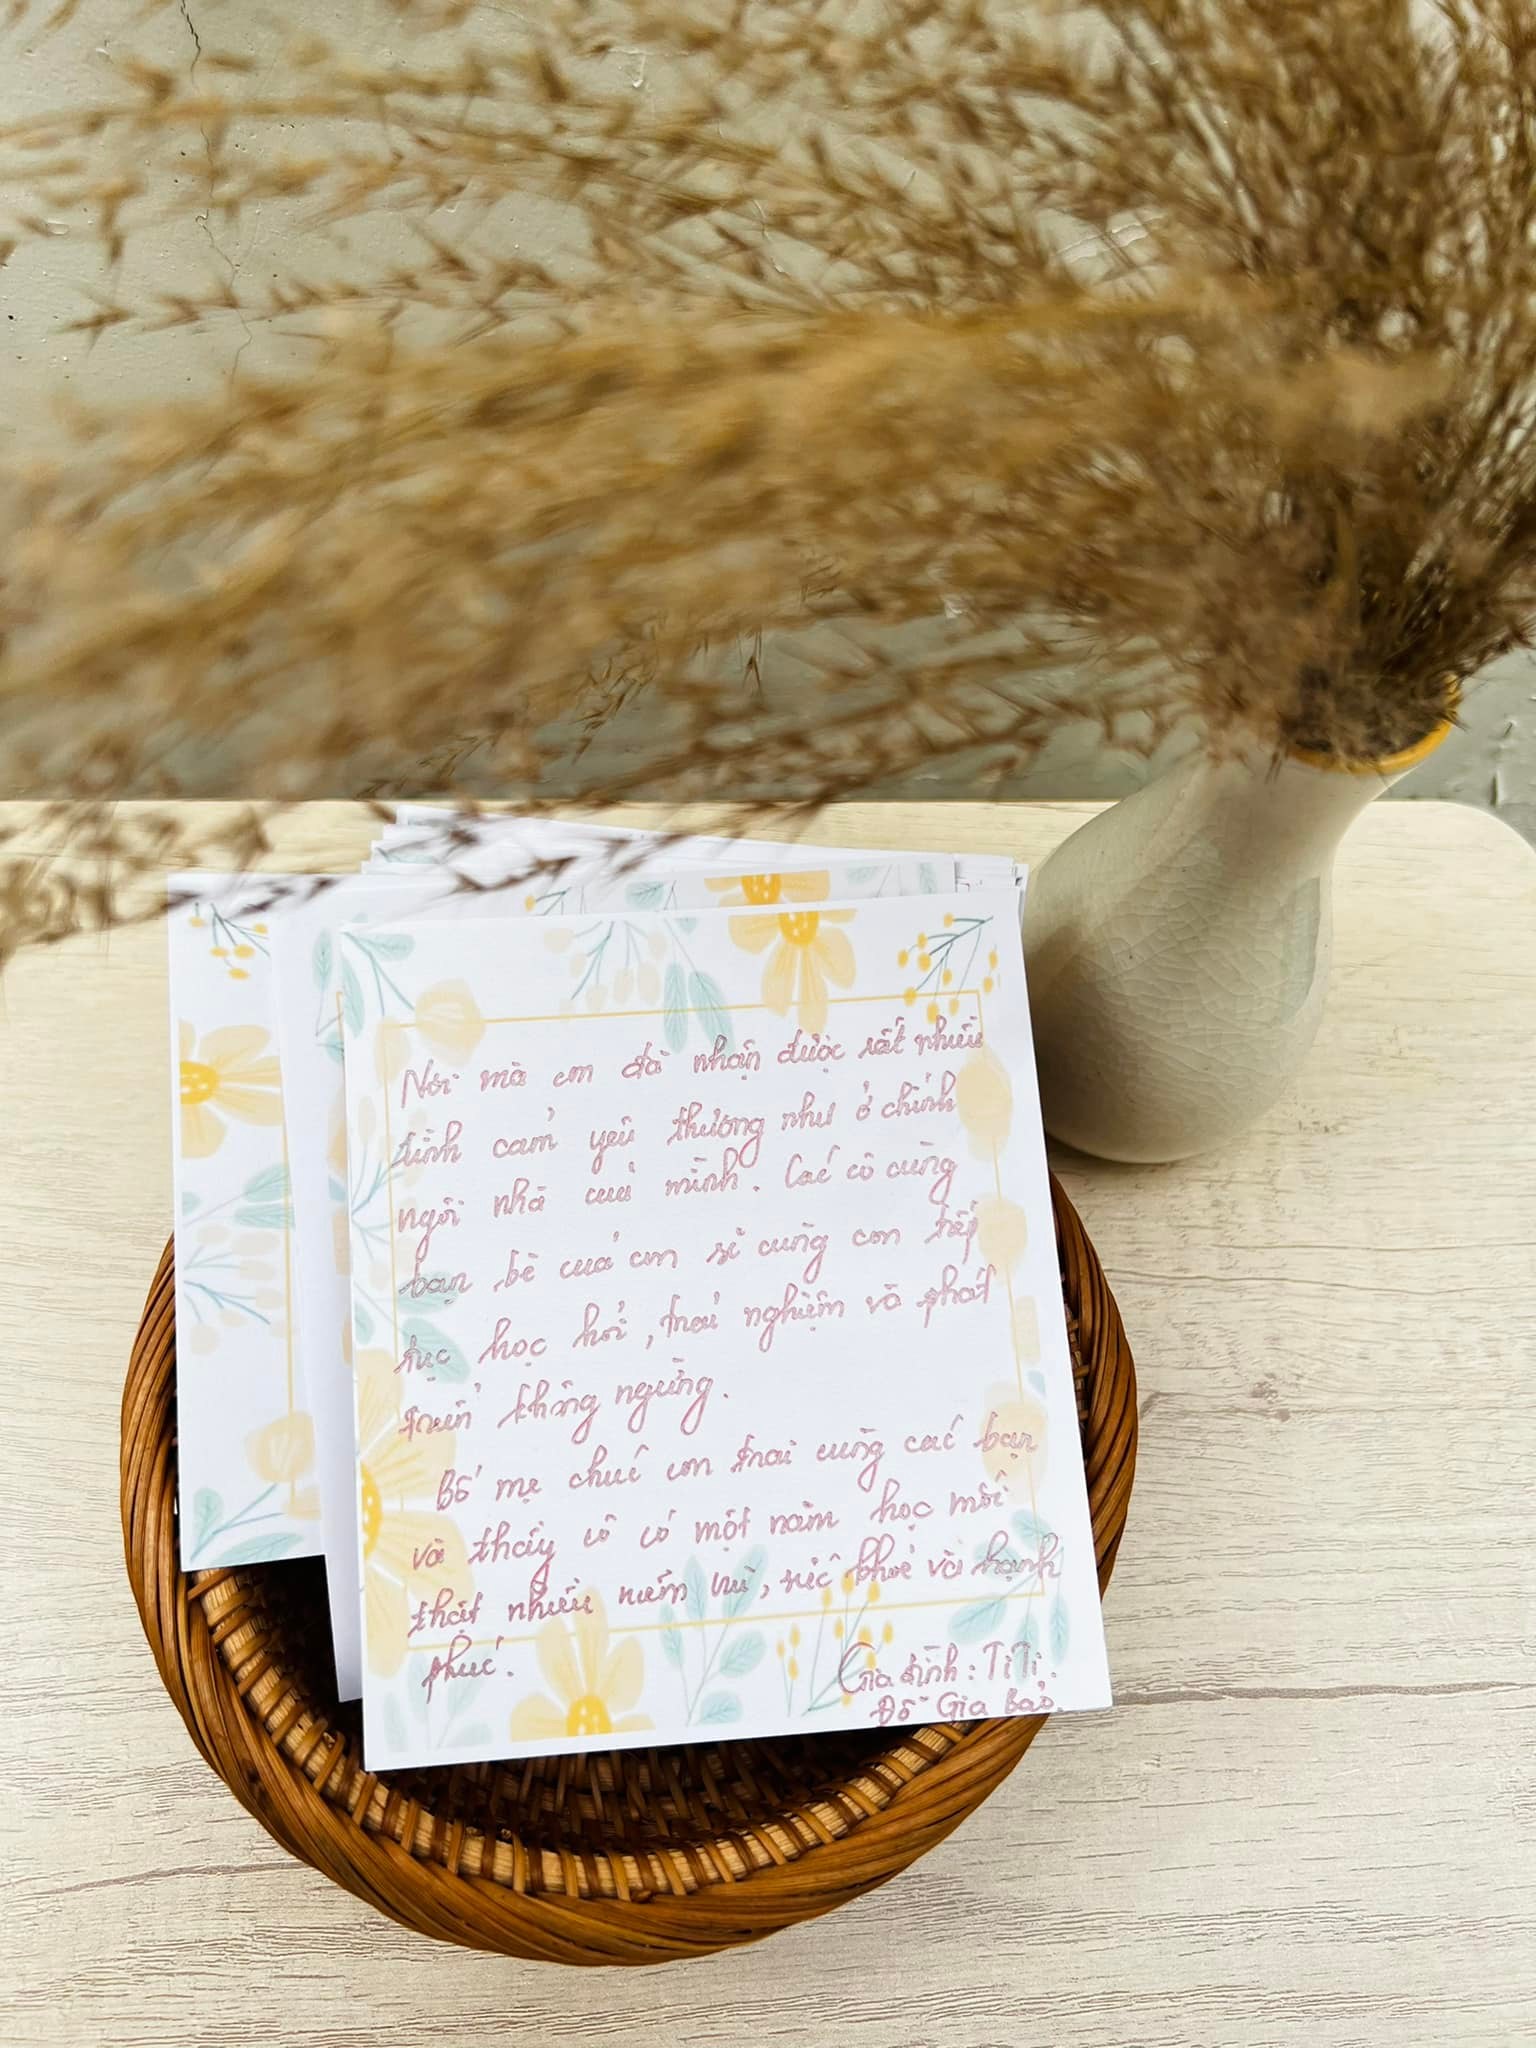 Nơi mà con đã nhận được rất nhiều
tình cảm yêu thương như ở chính
ngôi nhà của mình. Các cô cùng
bạn bè của con sẽ cùng con tiếp
tục học hỏi, trải nghiệm và phát
triển không ngừng.
Bố mẹ chúc con trai cùng các bạn
và thầy cô có một năm học mới
thật nhiều niềm vui, sức khoẻ và hạnh
phúc.
Gia đình: TiTi.
Đỗ Gia Bảo.